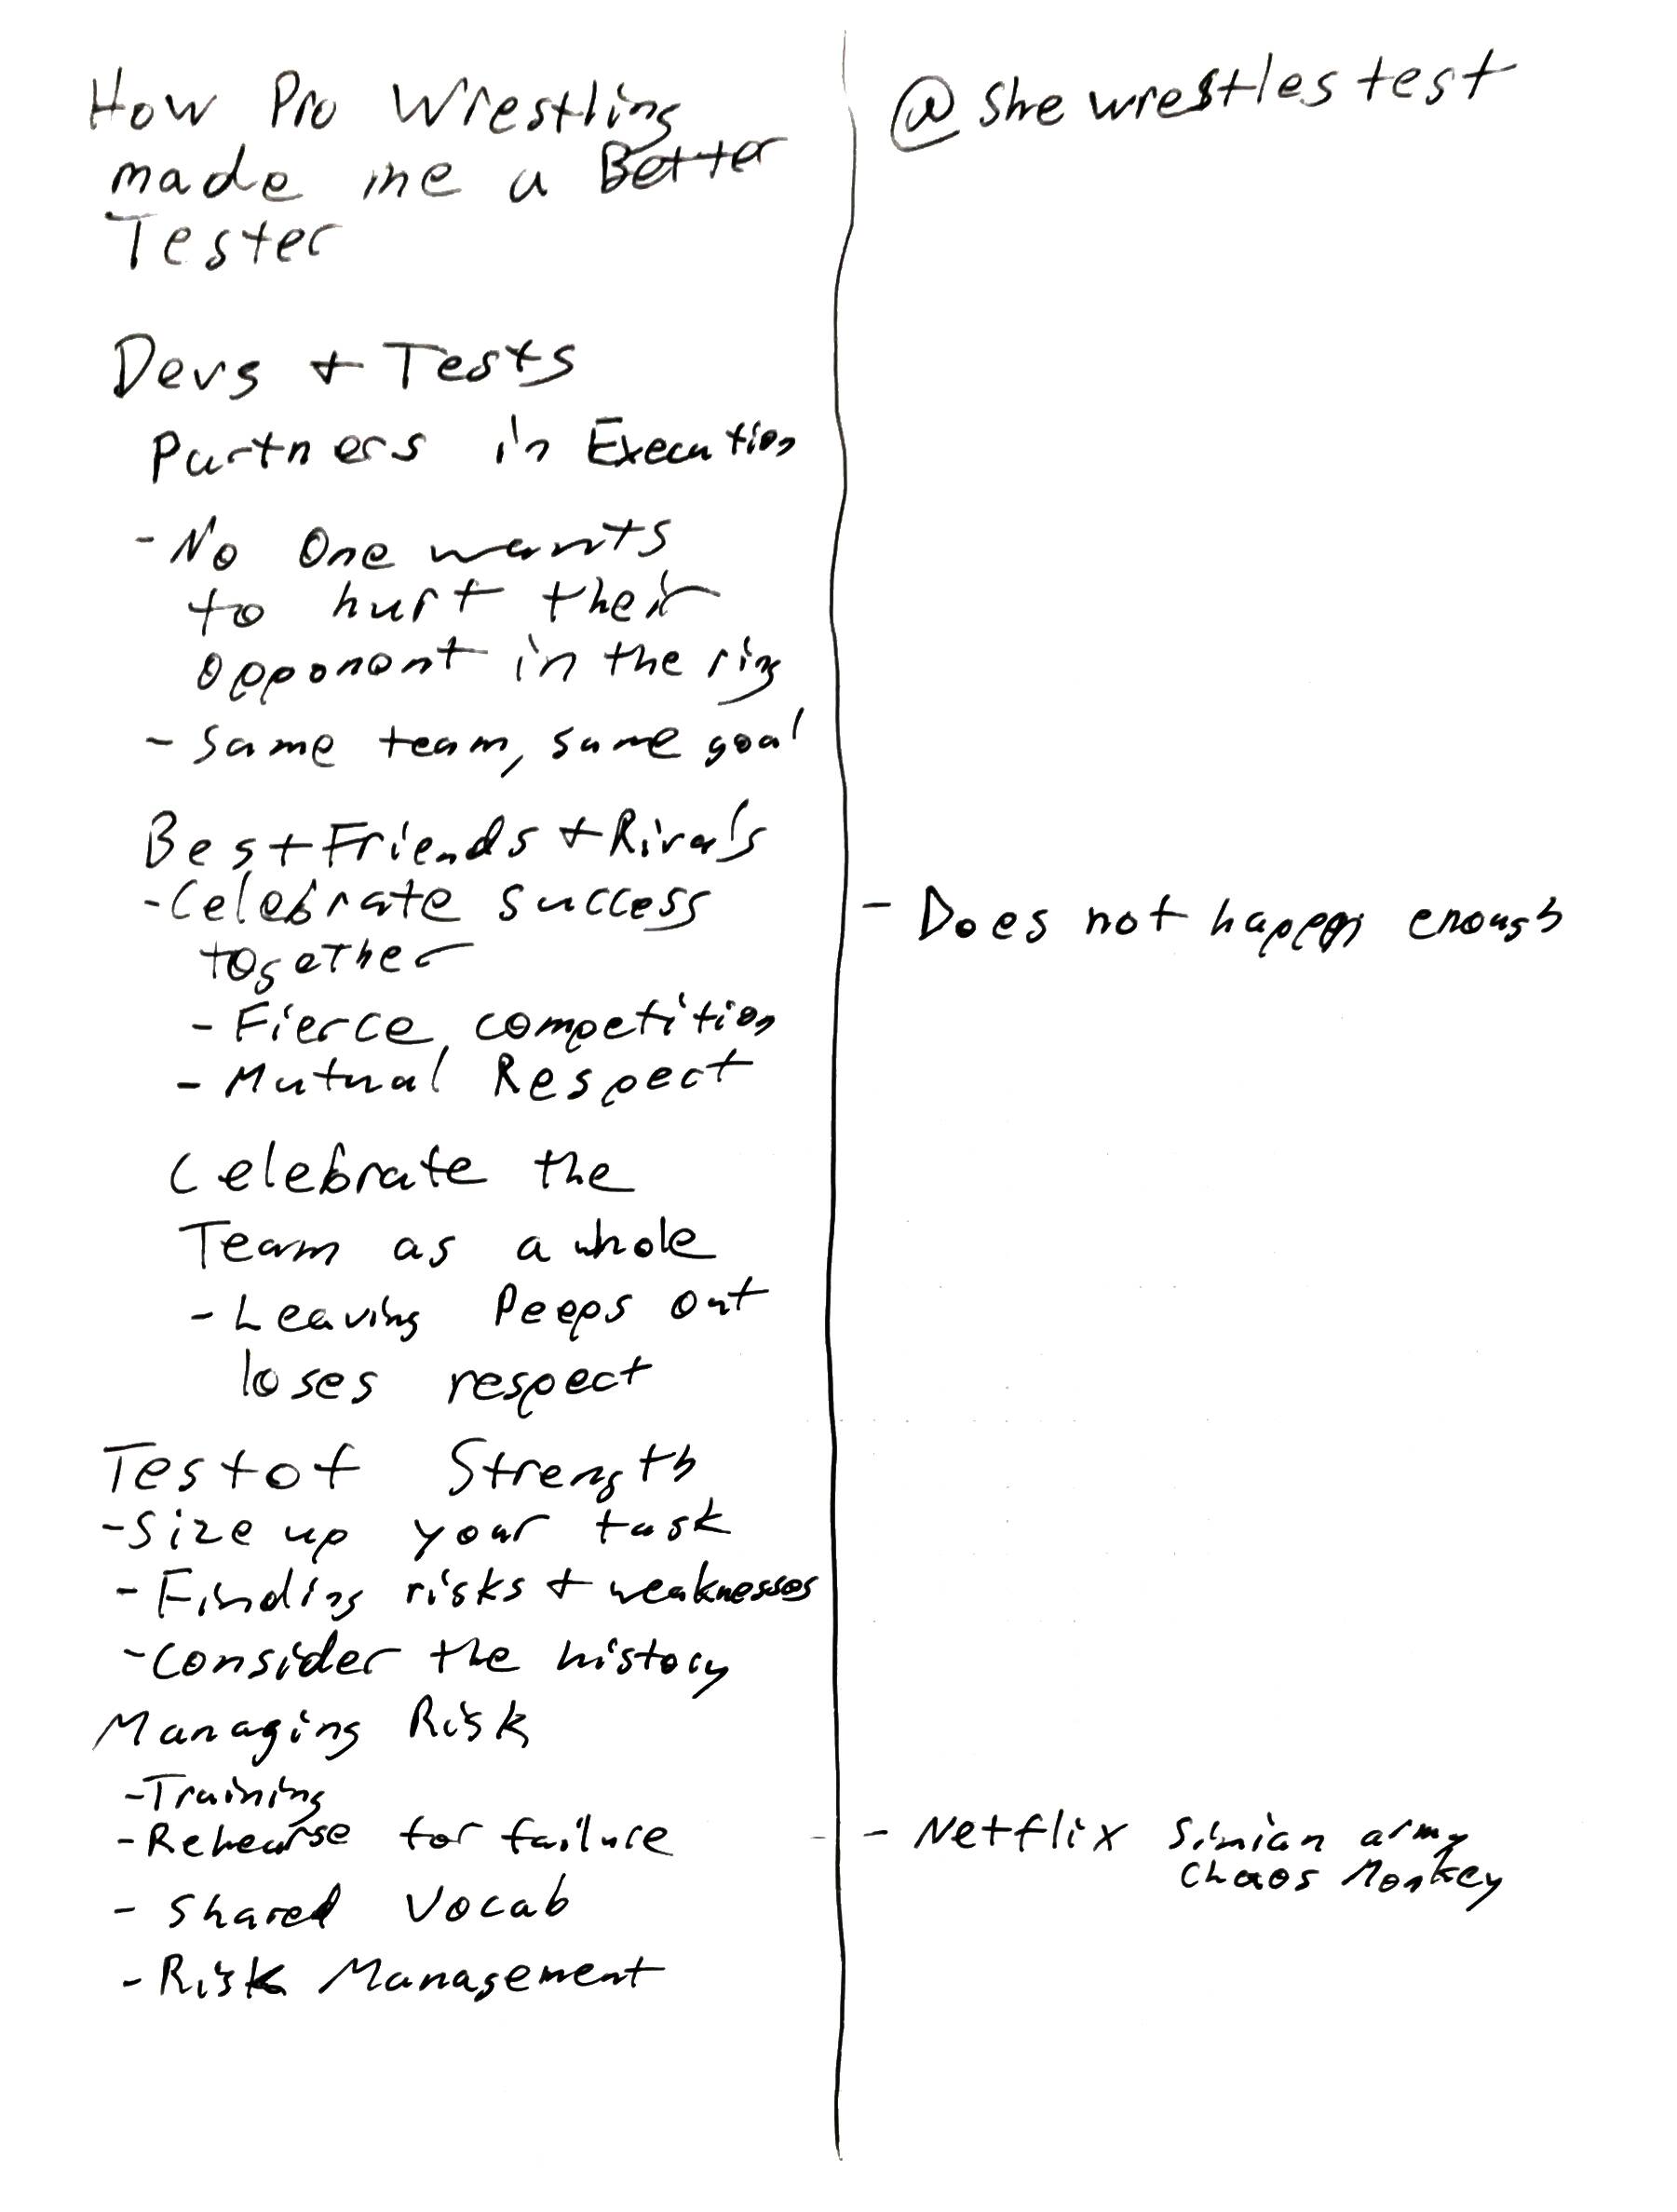 How Pro Wrestling
made me a Better
Tester
Devs + Tests
Partners in Execution
- No One wants
to hurt their
opponent in the ring
- Same team, same goal
Best Friends + Rivals
- Celebrate success
together
- Fierce competition
- Mutual Respect
Celebrate the
Team as a whole
- Leaving Peeps out
loses respect
Test of Strength
- Size up your task
- Finding risks + weaknesses
- Consider the history
Managing Risk
- Training
- Rehearse for failure
- Shared Vocab
- Risk Management
@shewrestlestest
- Does not happen enough
- Netflix Simian army
Chaos Monkey